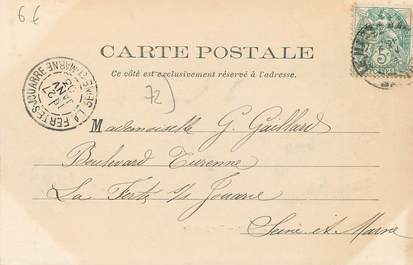 6 €
CARTE POSTALE
Ce côté est exclusivement réservé à l'adresse.
72
LA FERTE-S-JOUARRE
27 JANV
SEINE-ET-MARNE
5
Mademoiselle G. Gaillard
Boulevard Turenne
La Ferté s/s Jouarre
Seine et Marne